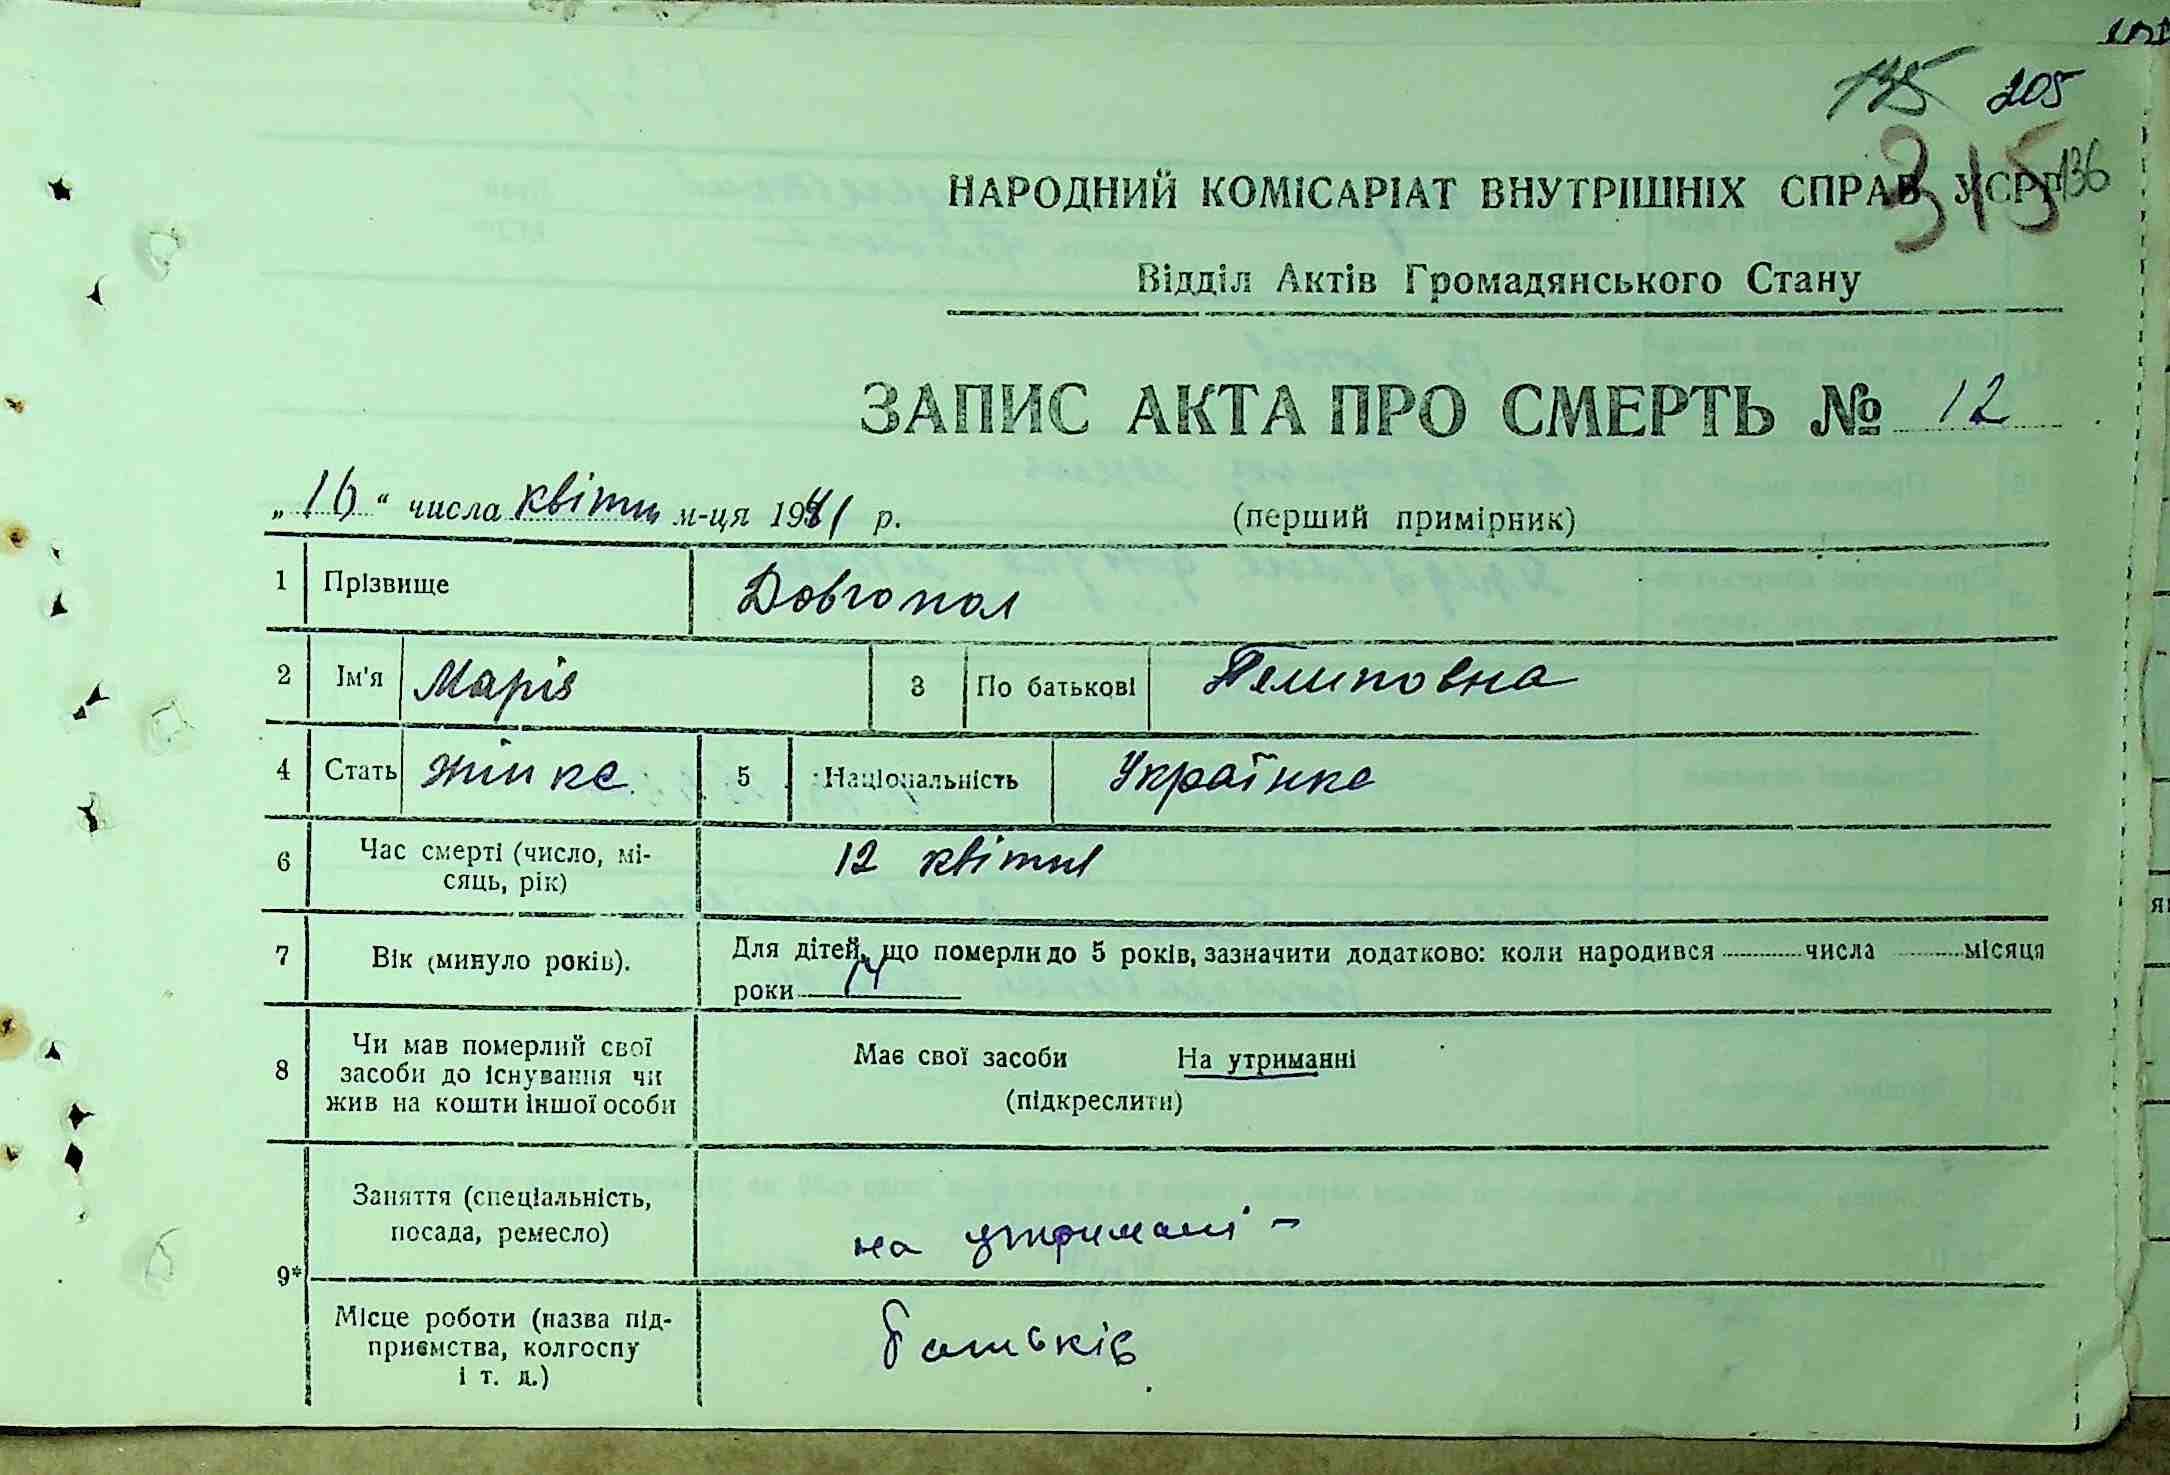 205
315 136
НАРОДНИЙ КОМІСАРІАТ ВНУТРІШНІХ СПРАВ УСРР
Відділ Актів Громадянського Стану
ЗАПИС АКТА ПРО СМЕРТЬ № 12
„ 16 “ числа квітня м-ця 1941 р. (перший примірник)
1 Прізвище Довгопол
2 Ім'я Марія 3 По батькові Пилиповна
4 Стать жінка 5 Національність Українка
6 Час смерті (число, мі-
сяць, рік) 12 квітня
7 Вік (минуло років). Для дітей, що померли до 5 років, зазначити додатково: коли народився числа місяця
роки 14
8 Чи мав померлий свої
засоби до існування чи
жив на кошти іншої особи
Має свої засоби На утриманні
(підкреслити)
9* Заняття (спеціальність,
посада, ремесло)
на утримані –
Місце роботи (назва під-
приємства, колгоспу
і т. д.)
батьків